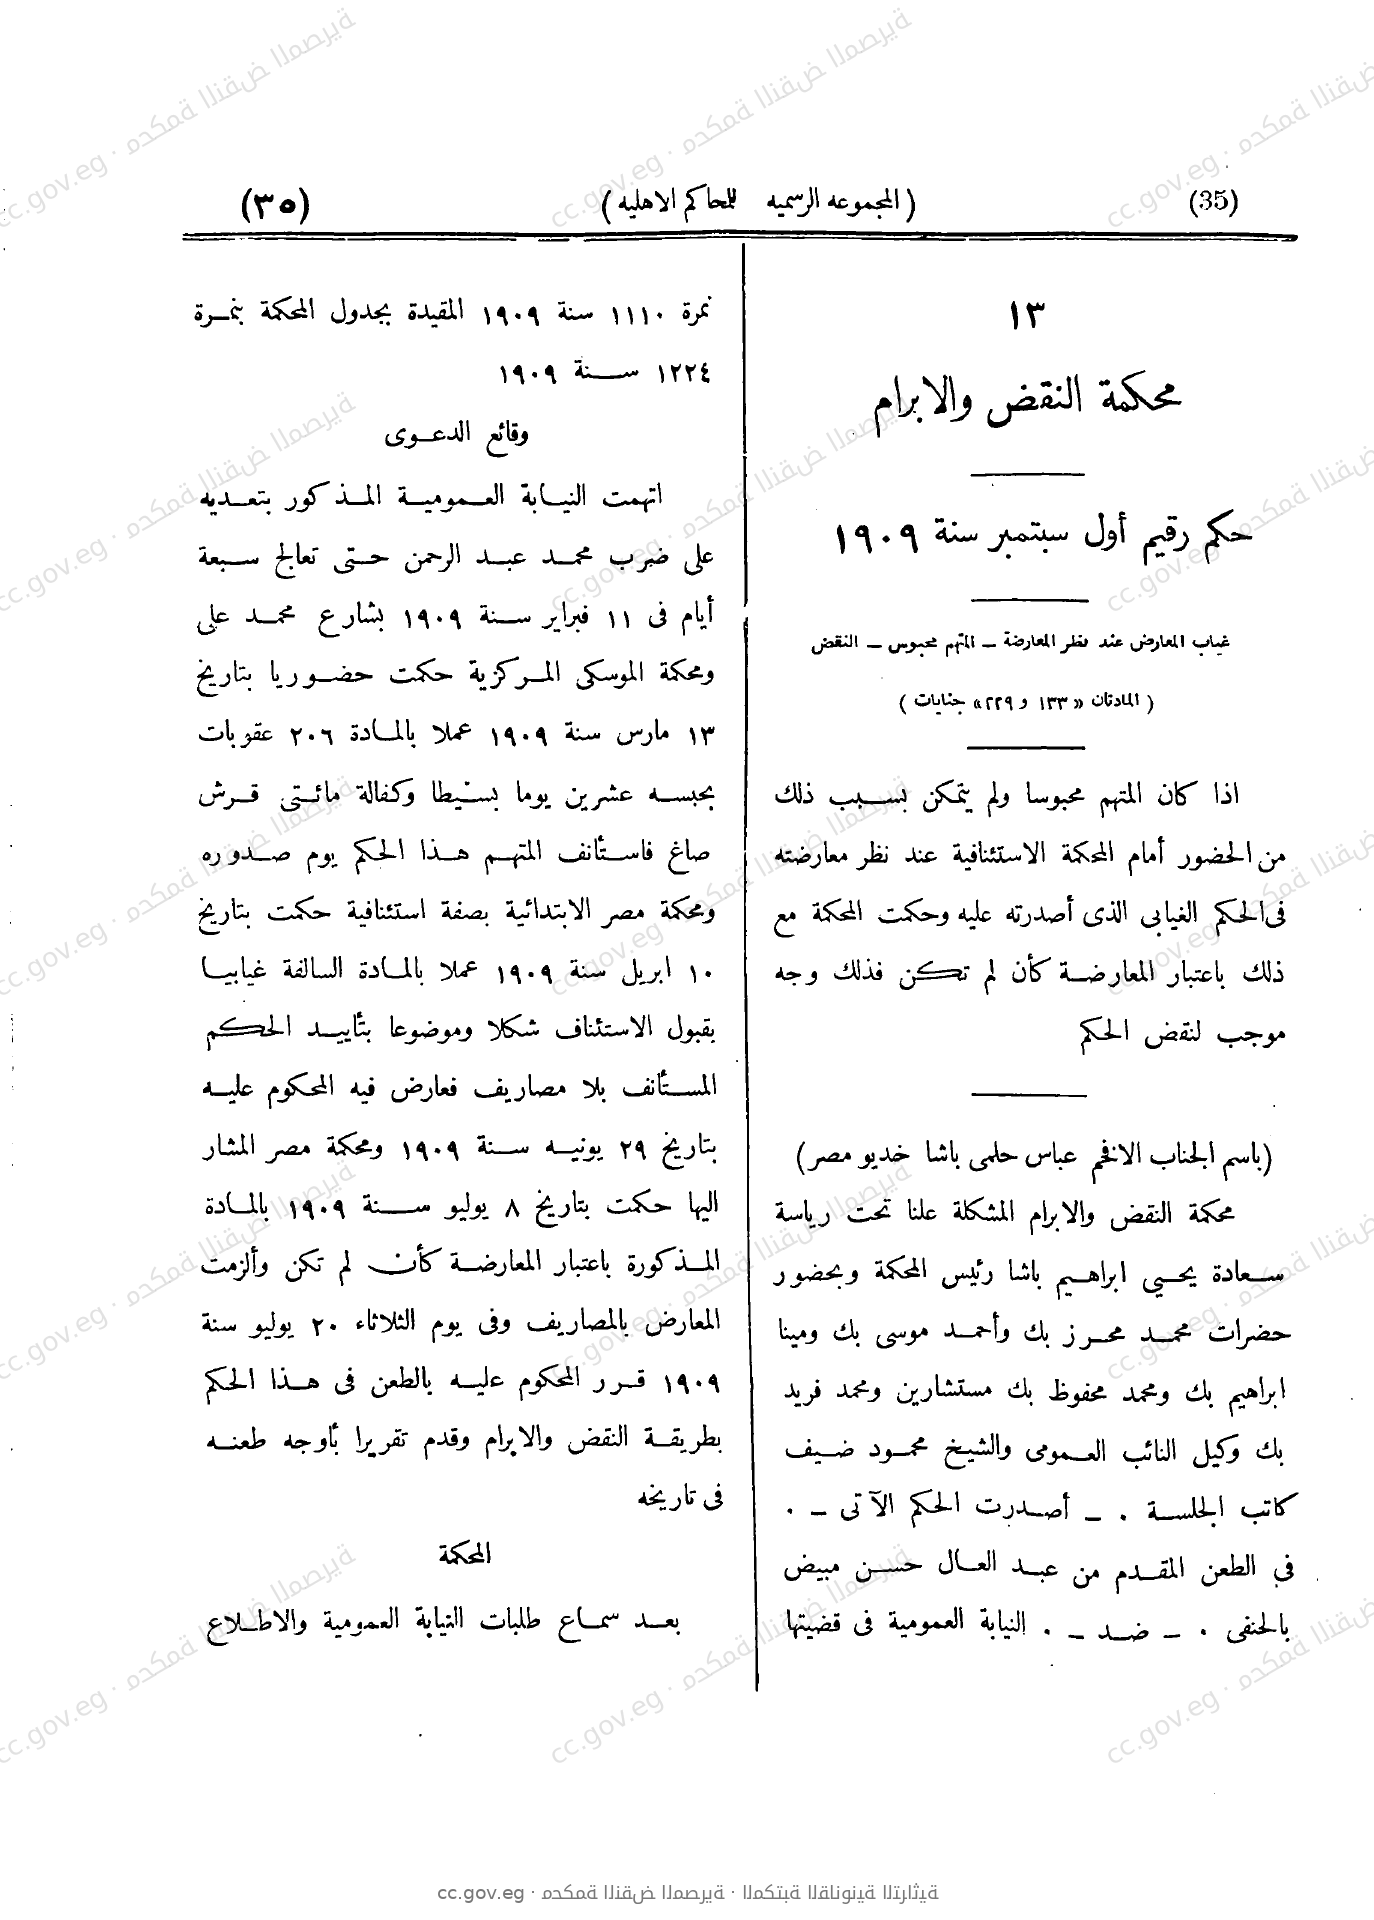 (35) (المجموعه الرسميه للمحاكم الاهليه) (٣٥)
١٣
محكمة النقض والابرام
حكم رقيم أول سبتمبر سنة ١٩٠٩
غياب المعارض عند نظر المعارضة – المتهم محبوس – النقض
(المادتان «١٣٣ و ٢٢٩» جنايات)
اذا كان المتهم محبوسا ولم يتمكن بسبب ذلك
من الحضور أمام المحكمة الاستئنافية عند نظر معارضته
فى الحكم الغيابى الذى أصدرته عليه وحكمت المحكمة مع
ذلك باعتبار المعارضة كأن لم تكن فذلك وجه
موجب لنقض الحكم
(باسم الجناب الافخم عباس حلمى باشا خديو مصر)
محكمة النقض والابرام المشكلة علنا تحت رياسة
سعادة يحيى ابراهيم باشا رئيس المحكمة وبحضور
حضرات محمد محرز بك وأحمد موسى بك ومينا
ابراهيم بك ومحمد محفوظ بك مستشارين ومحمد فريد
بك وكيل النائب العمومى والشيخ محمود ضيف
كاتب الجلسة . – أصدرت الحكم الآتى – .
فى الطعن المقدم من عبد العال حسن مبيض
بالحنفى . – ضد – . النيابة العمومية فى قضيتها
نمرة ١١١٠ سنة ١٩٠٩ المقيدة بجدول المحكمة بنمرة
١٢٢٤ سنة ١٩٠٩
وقائع الدعوى
اتهمت النيابة العمومية المذكور بتعديه
على ضرب محمد عبد الرحمن حتى تعالج سبعة
أيام فى ١١ فبراير سنة ١٩٠٩ بشارع محمد على
ومحكمة الموسكى المركزية حكمت حضوريا بتاريخ
١٣ مارس سنة ١٩٠٩ عملا بالمادة ٢٠٦ عقوبات
بحبسه عشرين يوما بسيطا وكفالة مائتى قرش
صاغ فاستأنف المتهم هذا الحكم يوم صدوره
ومحكمة مصر الابتدائية بصفة استئنافية حكمت بتاريخ
١٠ ابريل سنة ١٩٠٩ عملا بالمادة السالفة غيابيا
بقبول الاستئناف شكلا وموضوعا بتأييد الحكم
المستأنف بلا مصاريف فعارض فيه المحكوم عليه
بتاريخ ٢٩ يونيه سنة ١٩٠٩ ومحكمة مصر المشار
اليها حكمت بتاريخ ٨ يوليو سنة ١٩٠٩ بالمادة
المذكورة باعتبار المعارضة كأن لم تكن وألزمت
المعارض بالمصاريف وفى يوم الثلاثاء ٢٠ يوليو سنة
١٩٠٩ قرر المحكوم عليه بالطعن فى هذا الحكم
بطريقة النقض والابرام وقدم تقريرا بأوجه طعنه
فى تاريخه
المحكمة
بعد سماع طلبات النيابة العمومية والاطلاع
cc.gov.eg · محكمة النقض المصرية · المكتبة القانونية التراثية